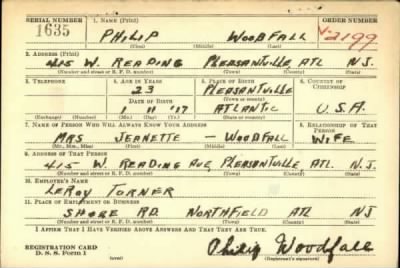 SERIAL NUMBER 1. NAME (Print) ORDER NUMBER
1635 PHILIP WOODFALL V2199
(First) (Middle) (Last)
2. ADDRESS (Print)
415 W. READING PLEASANTVILLE ATL N.J.
(Number and street or R. F. D. number) (Town) (County) (State)
3. TELEPHONE 4. AGE IN YEARS 5. PLACE OF BIRTH 6. COUNTRY OF CITIZENSHIP
23 PLEASANTVILLE
DATE OF BIRTH (Town or county)
1 11 '17 ATLANTIC U.S.A
(Exchange) (Number) (Mo.) (Day) (Yr.) (State or country)
7. NAME OF PERSON WHO WILL ALWAYS KNOW YOUR ADDRESS 8. RELATIONSHIP OF THAT PERSON
MRS JEANETTE — WOODFALL WIFE
(Mr., Mrs., Miss) (First) (Middle) (Last)
9. ADDRESS OF THAT PERSON
415 W. READING AVE, PLEASANTVILLE ATL. N.J.
(Number and street or R. F. D. number) (Town) (County) (State)
10. EMPLOYER'S NAME
LEROY TURNER
11. PLACE OF EMPLOYMENT OR BUSINESS
SHORE RD. NORTHFIELD ATL NJ
(Number and street or R. F. D. number) (Town) (County) (State)
I AFFIRM THAT I HAVE VERIFIED ABOVE ANSWERS AND THAT THEY ARE TRUE.
REGISTRATION CARD
D. S. S. Form 1 Philip Woodfall
(Registrant's signature)